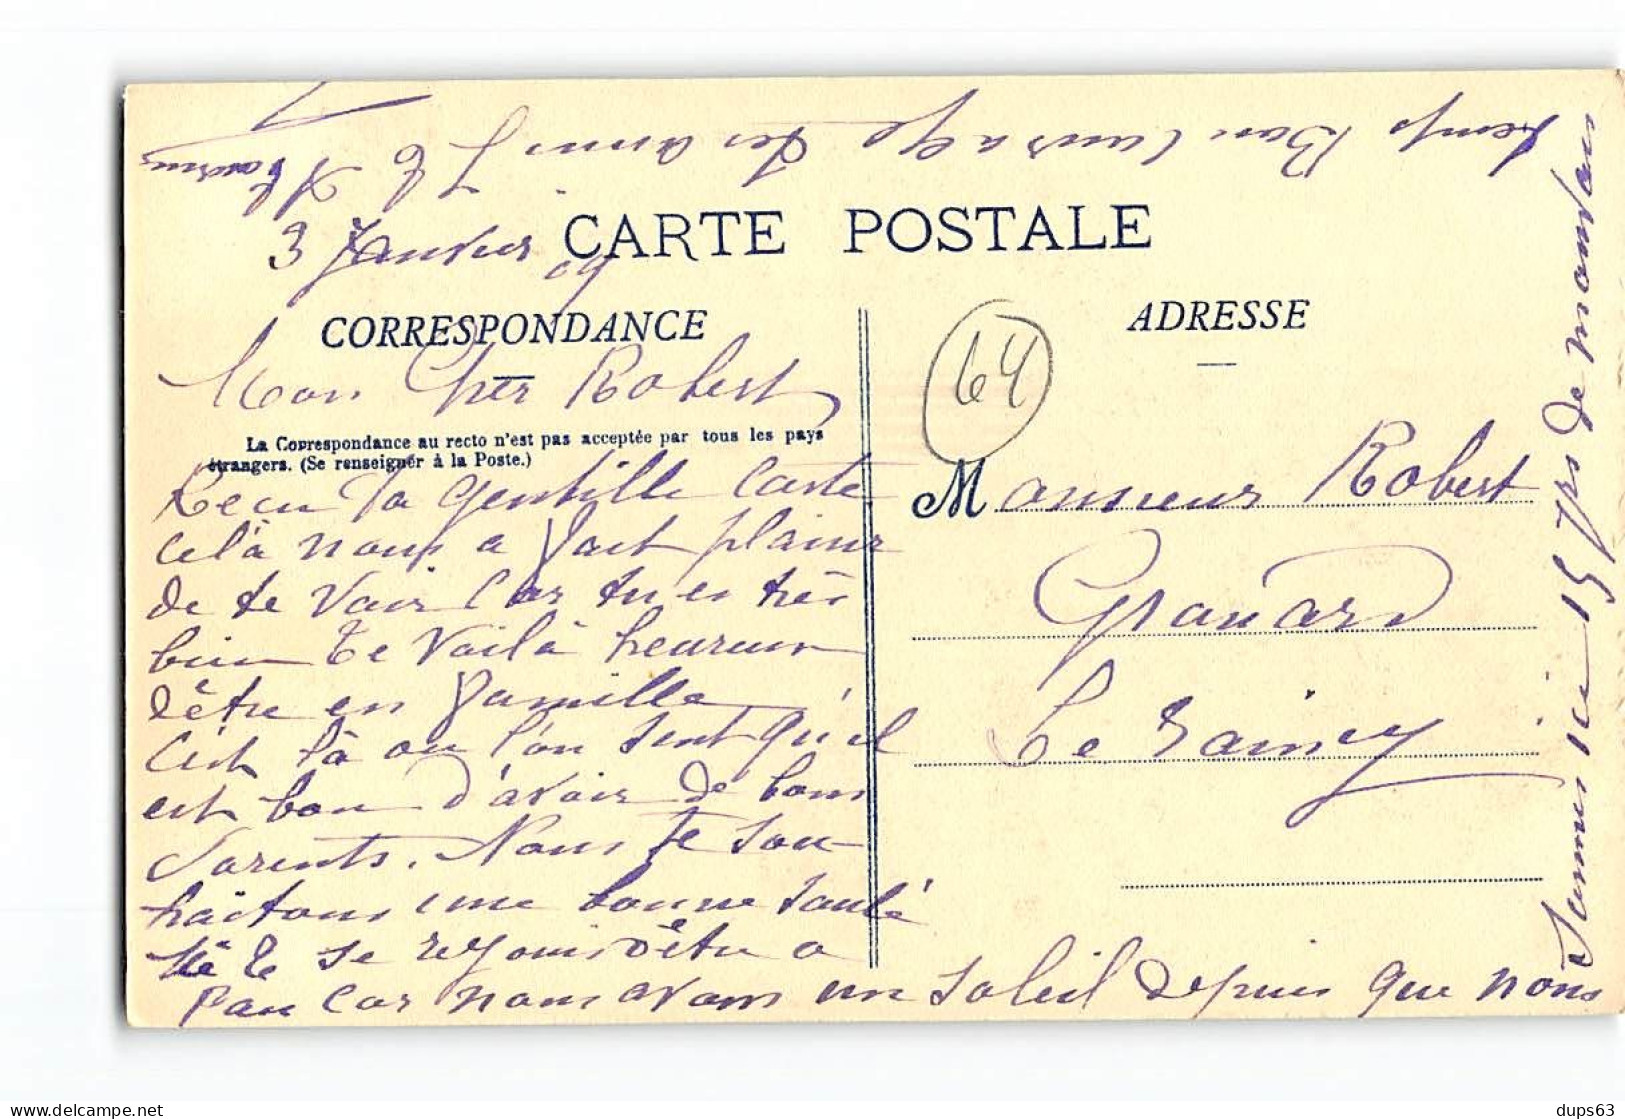 3 Janvier 09
CARTE POSTALE
CORRESPONDANCE
ADRESSE
Mon Cher Robert
La Correspondance au recto n'est pas acceptée par tous les pays
étrangers. (Se renseigner à la Poste.)
Reçu Ta gentille Carte
celà nous a fait plaisir
de te voir car tu es très
bien Te voilà heureux
d'être en famille
C'est là ou l'on sent qu'il
est bon d'avoir de bons
Parents. Nous Te sou-
haitons une bonne santé
se rejouis d'être a
Pau car nous avons un soleil depuis que nous
sommes ici 15 Jrs de mauvais
temps Bon Courage Tes amis
64
Monsieur Robert
Granard
Le Raincy
dups63
delcampe.net